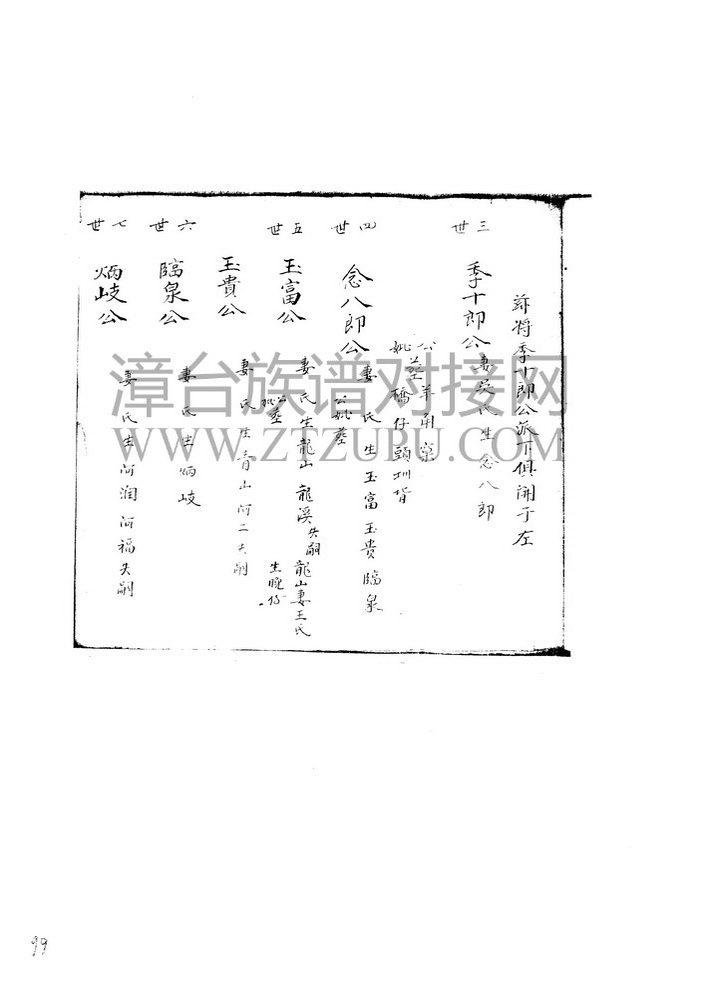 茲將季十郎公派下俱開于左
三世 季十郎公 妻吳氏生念八郎
公葬羊角窠
妣葬橋仔頭圳背
四世 念八郎公 妻 氏 生玉富玉貴臨泉
公妣葬
五世 玉富公 妻 氏生龍山 龍溪失嗣 龍山妻王氏
公妣葬 生晚仔
玉貴公 妻 氏生青山 河二失嗣
六世 臨泉公 妻 氏生炳岐
七世 炳岐公 妻 氏生河潤河福失嗣
漳台族谱对接网
WWW.ZTZUPU.COM
99